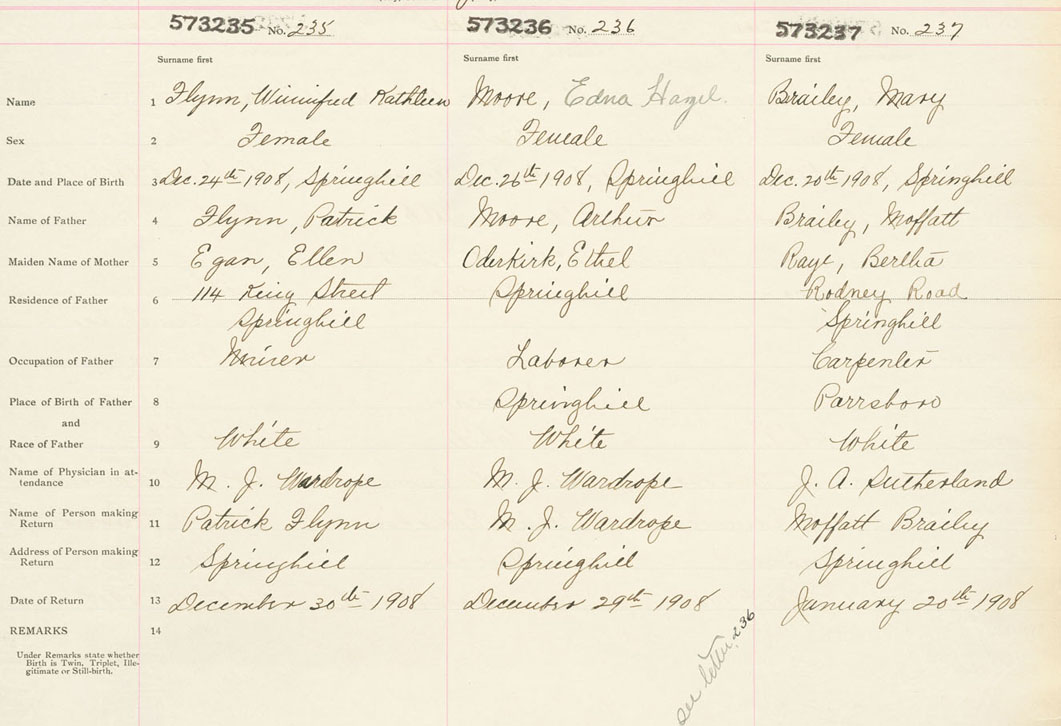 573235 No. 235 573236 No. 236 573237 No. 237
Surname first Surname first Surname first
Name 1 Flynn, Winnifred Kathleen Moore, Edna Hazel. Brailey, Mary
Sex 2 Female Female Female
Date and Place of Birth 3 Dec. 24th 1908, Springhill Dec. 26th 1908, Springhill Dec. 20th 1908, Springhill
Name of Father 4 Flynn, Patrick Moore, Arthur Brailey, Moffatt
Maiden Name of Mother 5 Egan, Ellen Oderkirk, Ethel Raye, Bertha
Residence of Father 6 114 King Street Springhill Rodney Road
Springhill Springhill
Occupation of Father 7 Miner Laborer Carpenter
Place of Birth of Father 8 Springhill Parrsboro
and
Race of Father 9 White White White
Name of Physician in at-
tendance 10 M. J. Wardrope M. J. Wardrope J. A. Sutherland
Name of Person making
Return 11 Patrick Flynn M. J. Wardrope Moffatt Brailey
Address of Person making
Return 12 Springhill Springhill Springhill
Date of Return 13 December 30th 1908 December 29th 1908 January 20th 1908
REMARKS 14
Under Remarks state whether
Birth is Twin, Triplet, Ille-
gitimate or Still-birth.
see letter 236